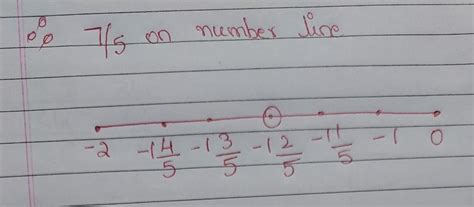 7/5 on number line
-2 -1 4/5 -1 3/5 -1 2/5 -1 1/5 -1 0